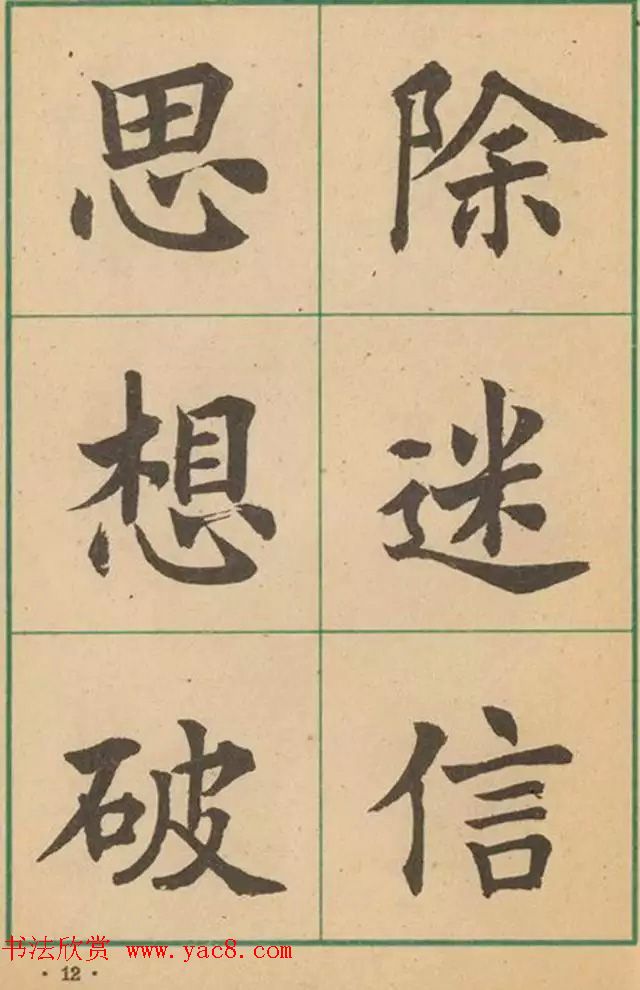 除迷信
思想破
书法欣赏 www.yac8.com
·12·